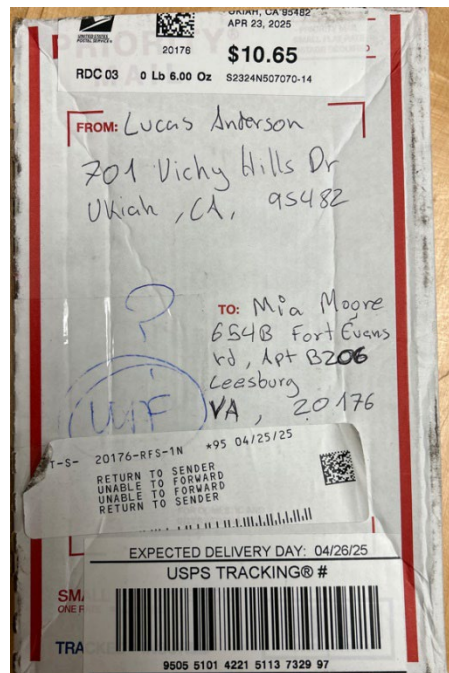 UNITED STATES
POSTAL SERVICE®
UKIAH, CA 95482
APR 23, 2025
20176
$10.65
RDC 03 0 Lb 6.00 Oz S2324N507070-14
FROM: Lucas Anderson
701 Vichy Hills Dr
Ukiah, CA, 95482
?
TO: Mia Moore
654B Fort Evans
rd, Apt B206
Leesburg
VA, 20176
UTF
T-S- 20176-RFS-1N *95 04/25/25
RETURN TO SENDER
UNABLE TO FORWARD
UNABLE TO FORWARD
RETURN TO SENDER
EXPECTED DELIVERY DAY: 04/26/25
USPS TRACKING® #
SMALL
ONE
TRAC
9505 5101 4221 5113 7329 97